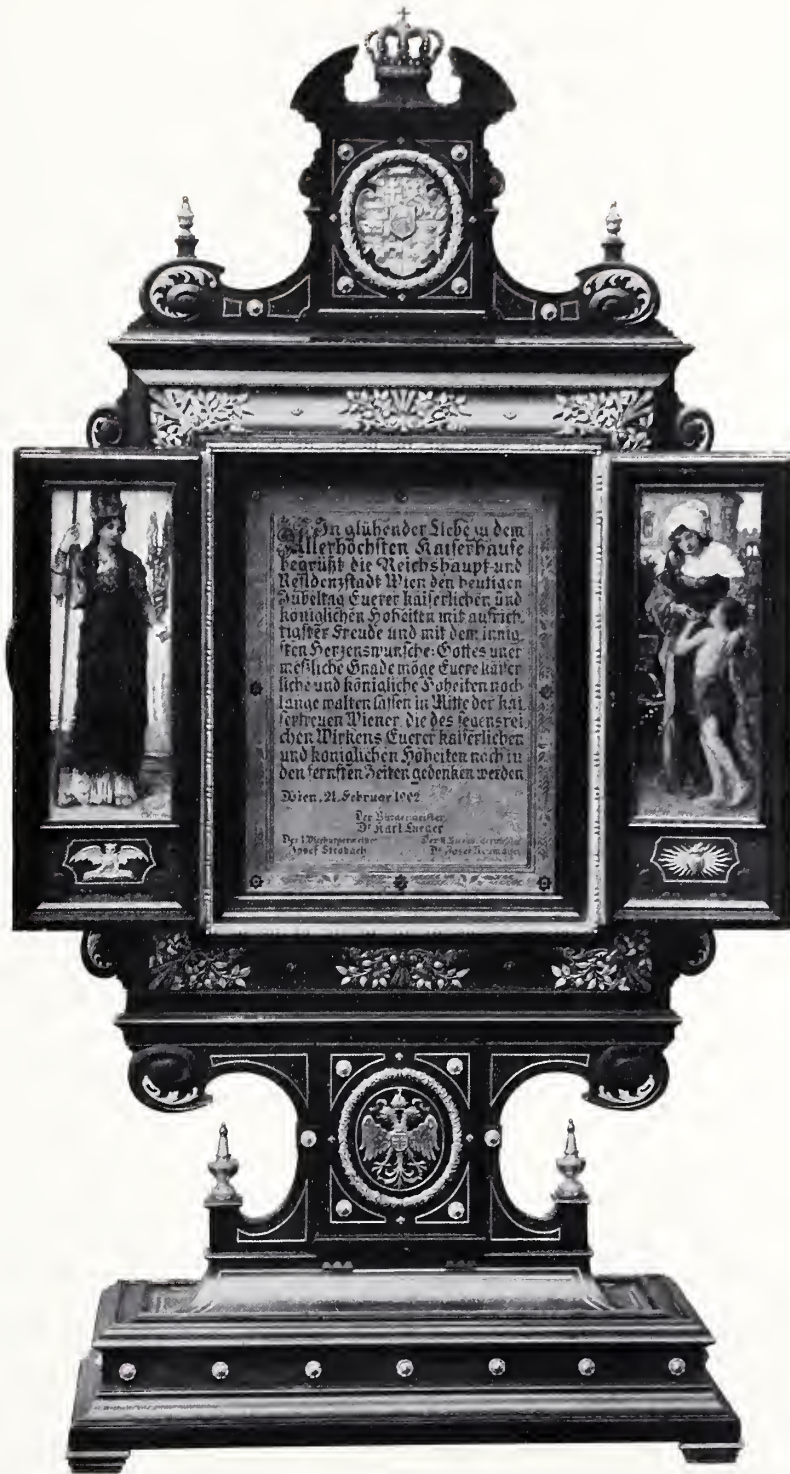 In glühender Liebe zu dem
Allerhöchsten Kaiserhause
begrüßt die Reichshaupt-und
Residenzstadt Wien den heutigen
Jubeltag Euerer kaiserlichen und
königlichen Hoheiten mit aufrich-
tigster Freude und mit dem innig
sten Herzenswunsche: Gottes uner
meßliche Gnade möge Euere kaiser
liche und königliche Hoheiten noch
lange walten lassen in Mitte der kai
sertreuen Wiener die des segensrei
chen Wirkens Euerer kaiserlichen
und königlichen Hoheiten noch in
den fernsten Zeiten gedenken werden
Wien, 21. Februar 1902
Der Bürgermeister
Dr Karl Lueger
Der I. Vizebürgermeister
Josef Strobach
Der II. Vizebürgermeister
Dr Josef Neumayer